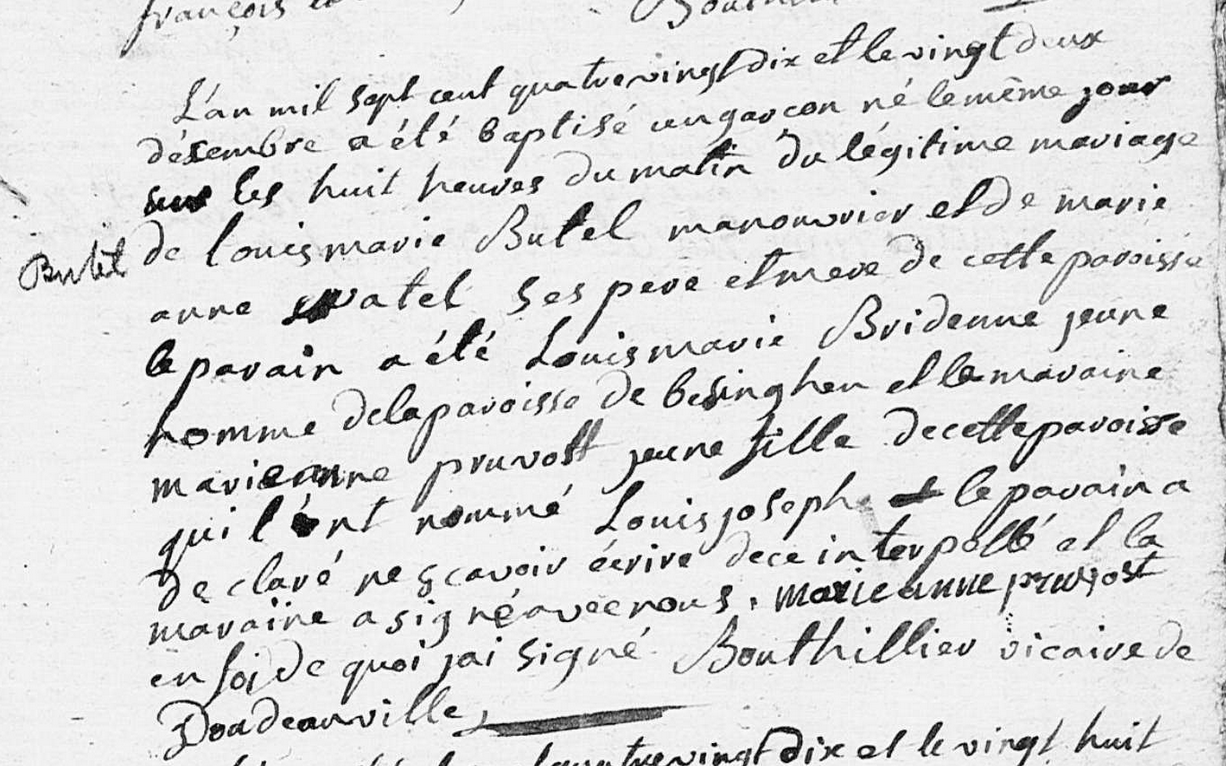 françois
L'an mil sept cent quatrevingt dix et le vingt deux
désembre a été baptisé un garcon né le même jour
sur les huit heures du matin du légitime mariage
Butel
de louis marie Butel manouvrier et de marie
anne watel ses pere et mere de cette paroisse
le parain a été Louis marie Bridenne jeune
homme de la paroisse de besinghen et la maraine
marieanne pruvost jeune fille de cette paroisse
qui l'ont nommé Louis joseph le parain a
de claré ne sçavoir écrire de ce interpellé et la
maraine a signé avec nous. marieanne pruvost
en foi de quoi jai signé Bouthillier vicaire de
Doudeauville
quatrevingt dix et le vingt huit